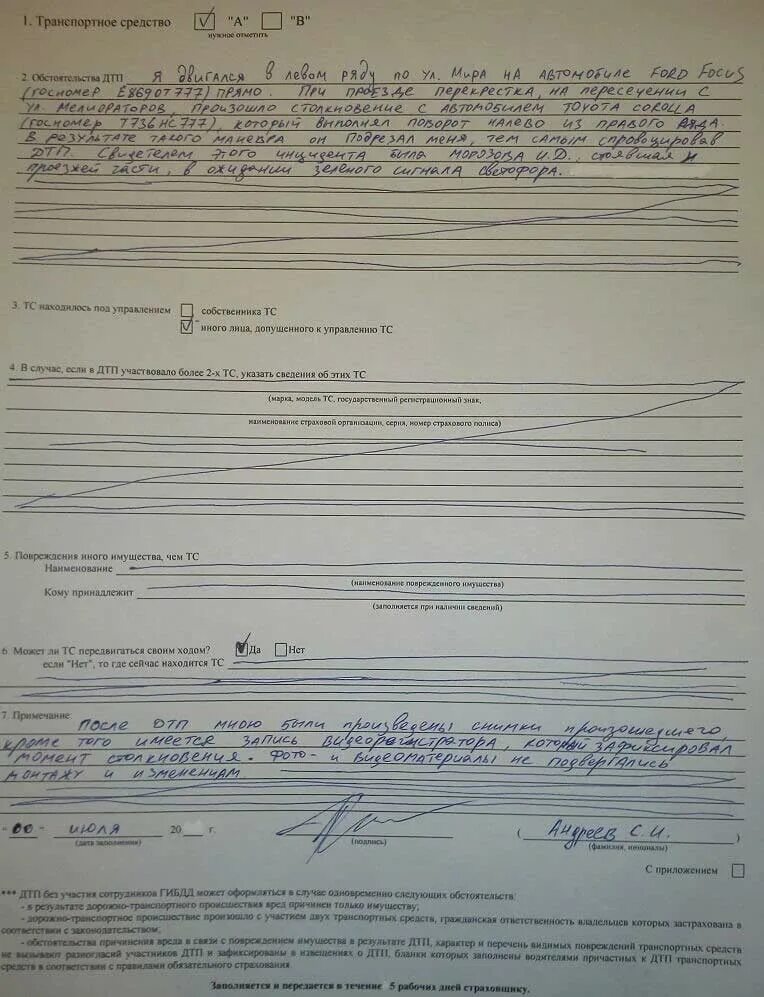 1. Транспортное средство ☑ "А" ☐ "В"
нужное отметить
2. Обстоятельства ДТП Я двигался в левом ряду по ул. Мира на автомобиле FORD FOCUS
(госномер Е869ОТ777) прямо. При проезде перекрестка, на пересечении с
ул. Мелиораторов, произошло столкновение с автомобилем TOYOTA COROLLA
(госномер Т736НС777), который выполнял поворот налево из правого ряда.
В результате такого маневра он подрезал меня, тем самым спровоцировав
ДТП. Свидетелем этого инцидента была Морозова И.Д., стоявшая у
проезжей части, в ожидании зеленого сигнала светофора.
3. ТС находилось под управлением ☐ собственника ТС
☑ иного лица, допущенного к управлению ТС
4. В случае, если в ДТП участвовало более 2-х ТС, указать сведения об этих ТС
(марка, модель ТС, государственный регистрационный знак,
наименование страховой организации, серия, номер страхового полиса)
5. Повреждения иного имущества, чем ТС
Наименование
(наименование поврежденного имущества)
Кому принадлежит
(заполняется при наличии сведений)
6. Может ли ТС передвигаться своим ходом? ☑ Да ☐ Нет
если "Нет", то где сейчас находится ТС
7. Примечание После ДТП мною были произведены снимки произошедшего,
кроме того имеется запись видеорегистратора, который зафиксировал
момент столкновения. Фото- и видеоматериалы не подвергались
монтажу и изменениям
"00" июля 20 г. ( Андреев С.И. )
(дата заполнения) (подпись) (фамилия, инициалы)
С приложением ☐
*** ДТП без участия сотрудников ГИБДД может оформляться в случае одновременно следующих обстоятельств:
- в результате дорожно-транспортного происшествия вред причинен только имуществу;
- дорожно-транспортное происшествие произошло с участием двух транспортных средств, гражданская ответственность владельцев которых застрахована в
соответствии с законодательством;
- обстоятельства причинения вреда в связи с повреждением имущества в результате ДТП, характер и перечень видимых повреждений транспортных средств
не вызывают разногласий участников ДТП и зафиксированы в извещениях о ДТП, бланки которых заполнены водителями причастных к ДТП транспортных
средств в соответствии с правилами обязательного страхования
Заполняется и передается в течение 5 рабочих дней страховщику.